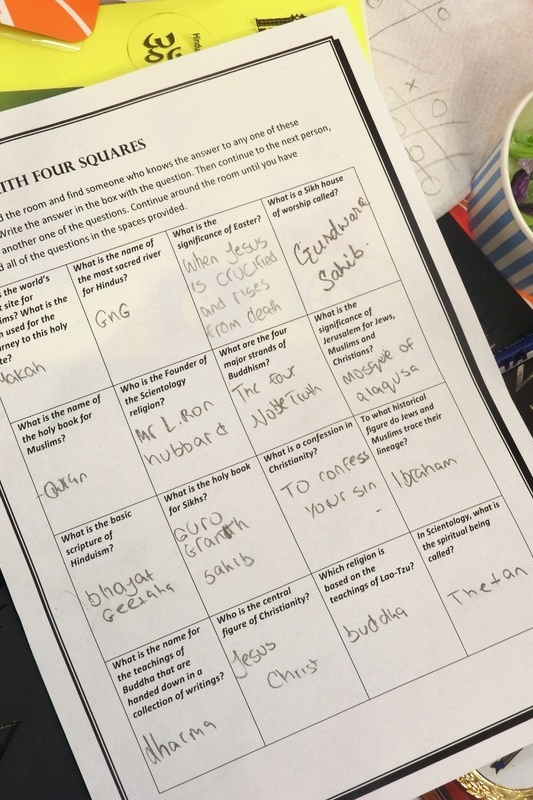 ITH FOUR SQUARES
d the room and find someone who knows the answer to any one of these
Write the answer in the box with the question. Then continue to the next person,
another one of the questions. Continue around the room until you have
d all of the questions in the spaces provided.
the world's
t site for
ims? What is the
used for the
rney to this holy
te?
akah
What is the name of
the most sacred river
for Hindus?
GnG
What is the
significance of Easter?
When Jesus
is crucified
and rises
from death
What is a Sikh house
of worship called?
Gurdwara
Sahib.
What is the name of
the holy book for
Muslims?
Quran
Who is the Founder of
the Scientology
religion?
Mr L. Ron
hubbard
What are the four
major strands of
Buddhism?
The Four
Noble Truth
What is the
significance of
Jerusalem for Jews,
Muslims and
Christians?
mosque of
alaqusa
What is the basic
scripture of
Hinduism?
bhagat
Geetaha
What is the holy book
for Sikhs?
Guro
Granth
sahib
What is a confession in
Christianity?
To confess
your sin
To what historical
figure do Jews and
Muslims trace their
lineage?
Ibraham
What is the name for
the teachings of
Buddha that are
handed down in a
collection of writings?
dharma
Who is the central
figure of Christianity?
Jesus
Christ
Which religion is
based on the
teachings of Lao-Tzu?
buddha
In Scientology, what is
the spiritual being
called?
Thetan